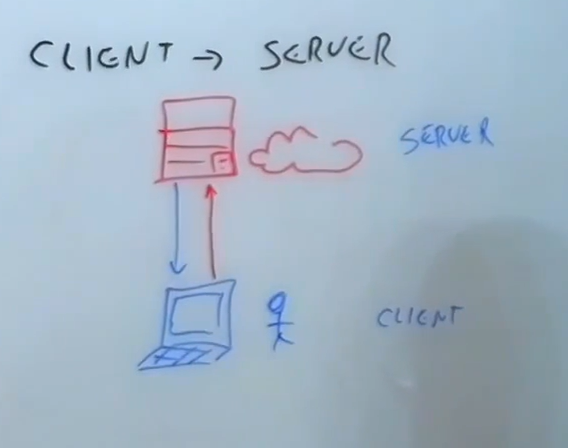 CLIENT → SERVER
SERVER
CLIENT